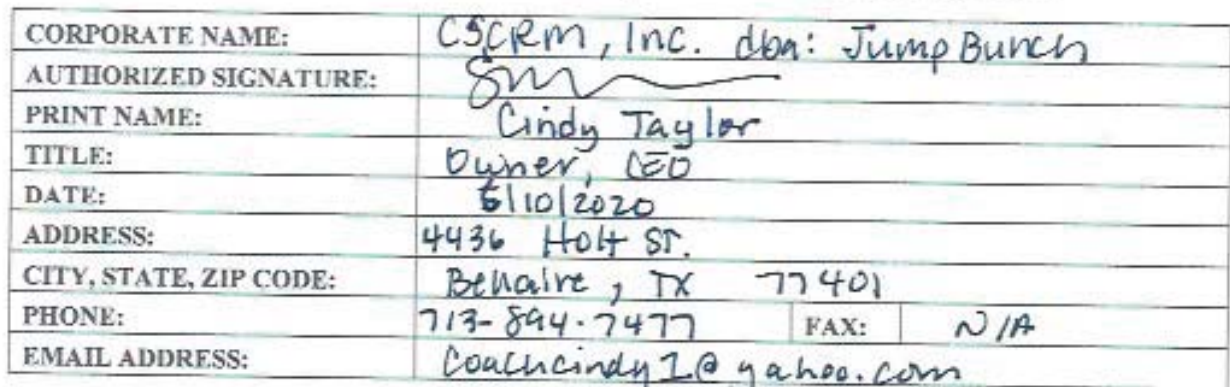 CORPORATE NAME: CSCRM, Inc. dba: Jump Bunch
AUTHORIZED SIGNATURE:
PRINT NAME: Cindy Taylor
TITLE: Owner, CEO
DATE: /10/2020
ADDRESS: 4436 Holt St.
CITY, STATE, ZIP CODE: Bellaire, TX 77401
PHONE: 713-894-7477 FAX: N/A
EMAIL ADDRESS: Coachcindy1@yahoo.com